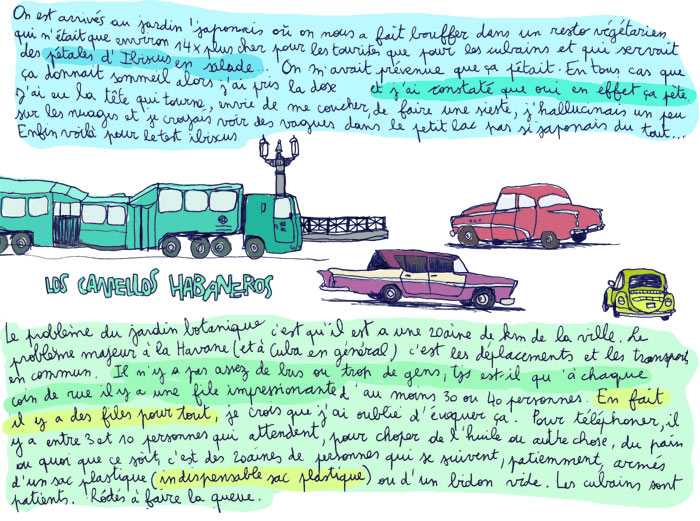 On est arrivés au jardin "japonais où on nous a fait bouffer dans un resto végétarien
qui n'était que environ 14x plus cher pour les touristes que pour les cubains et qui servait
des pétales d'Ibiscus en salade... On m'avait prévenue que ça pétait. En tous cas que
ça donnait sommeil alors j'ai pris la dose et j'ai constaté que oui en effet ça pète
J'ai eu la tête qui tourne, envie de me coucher, de faire une sieste, j'hallucinais un peu
sur les nuages et je croyais voir des vagues dans le petit lac pas si japonais du tout...
Enfin voilà pour le test ibiscus
LOS CAMELLOS HABANEROS
Le problème du jardin botanique c'est qu'il est a une 20aine de km de la ville. Le
problème majeur à la Havane (et à Cuba en général) c'est les déplacements et les transports
en commun. Il n'y a pas assez de bus ou trop de gens, tjs est-il qu'à chaque
coin de rue il y a une file impressionante d'au moins 30 ou 40 personnes. En fait
il y a des files pour tout, je crois que j'ai oublié d'évoquer ça. Pour téléphoner, il
y a entre 3 et 10 personnes qui attendent, pour choper de l'huile ou autre chose, du pain
ou quoi que ce soit, c'est des 20aines de personnes qui se suivent, patiemment, armés
d'un sac plastique (indispensable sac plastique) ou d'un bidon vide. Les cubains sont
patients. Rôdés à faire la queue.